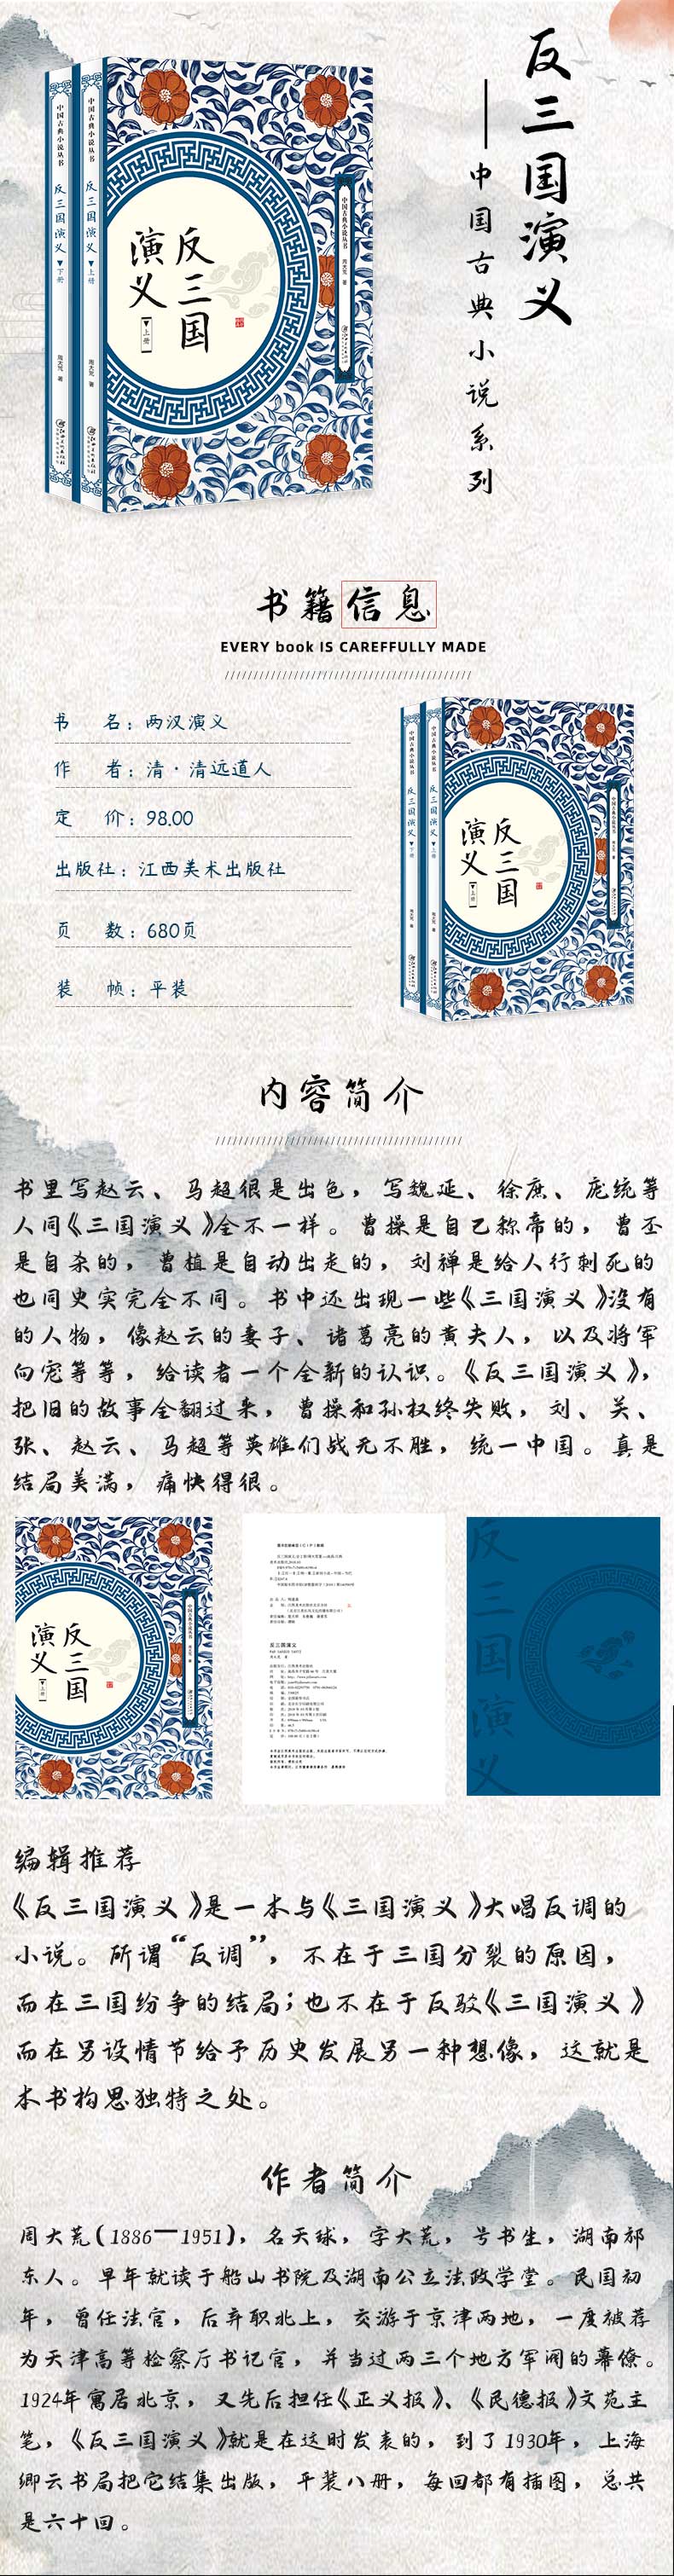 反三国演义
中国古典小说系列
中国古典小说丛书
反三国演义
下册
周大荒 著
中国古典小说丛书
反三国演义
上册
周大荒 著
反三国
演义
上册
中国古典小说丛书
周大荒 著
书籍信息
EVERY book IS CAREFFULLY MADE
书 名：两汉演义
作 者：清·清远道人
定 价：98.00
出版社：江西美术出版社
页 数：680页
装 帧：平装
中国古典小说丛书
反三国演义
下册
中国古典小说丛书
反三国演义
上册
反三国
演义
上册
内容简介
书里写赵云、马超很是出色，写魏延、徐庶、庞统等
人同《三国演义》全不一样。曹操是自己称帝的，曹丕
是自杀的，曹植是自动出走的，刘禅是给人行刺死的
也同史实完全不同。书中还出现一些《三国演义》没有
的人物，像赵云的妻子、诸葛亮的黄夫人，以及将军
向宠等等，给读者一个全新的认识。《反三国演义》，
把旧的故事全翻过来，曹操和孙权终失败，刘、关、
张、赵云、马超等英雄们战无不胜，统一中国。真是
结局美满，痛快得很。
反三国
演义
上册
反三国演义
反三国演义
编辑推荐
《反三国演义》是一本与《三国演义》大唱反调的
小说。所谓“反调”，不在于三国分裂的原因，
而在三国纷争的结局；也不在于反驳《三国演义》
而在另设情节给予历史发展另一种想像，这就是
本书构思独特之处。
作者简介
周大荒（1886—1951），名天球，字大荒，号书生，湖南祁
东人。早年就读于船山书院及湖南公立法政学堂。民国初
年，曾任法官，后弃职北上，交游于京津两地，一度被荐
为天津高等检察厅书记官，并当过两三个地方军阀的幕僚。
1924年寓居北京，又先后担任《正义报》、《民德报》文苑主
笔，《反三国演义》就是在这时发表的，到了1930年，上海
卿云书局把它结集出版，平装八册，每回都有插图，总共
是六十回。